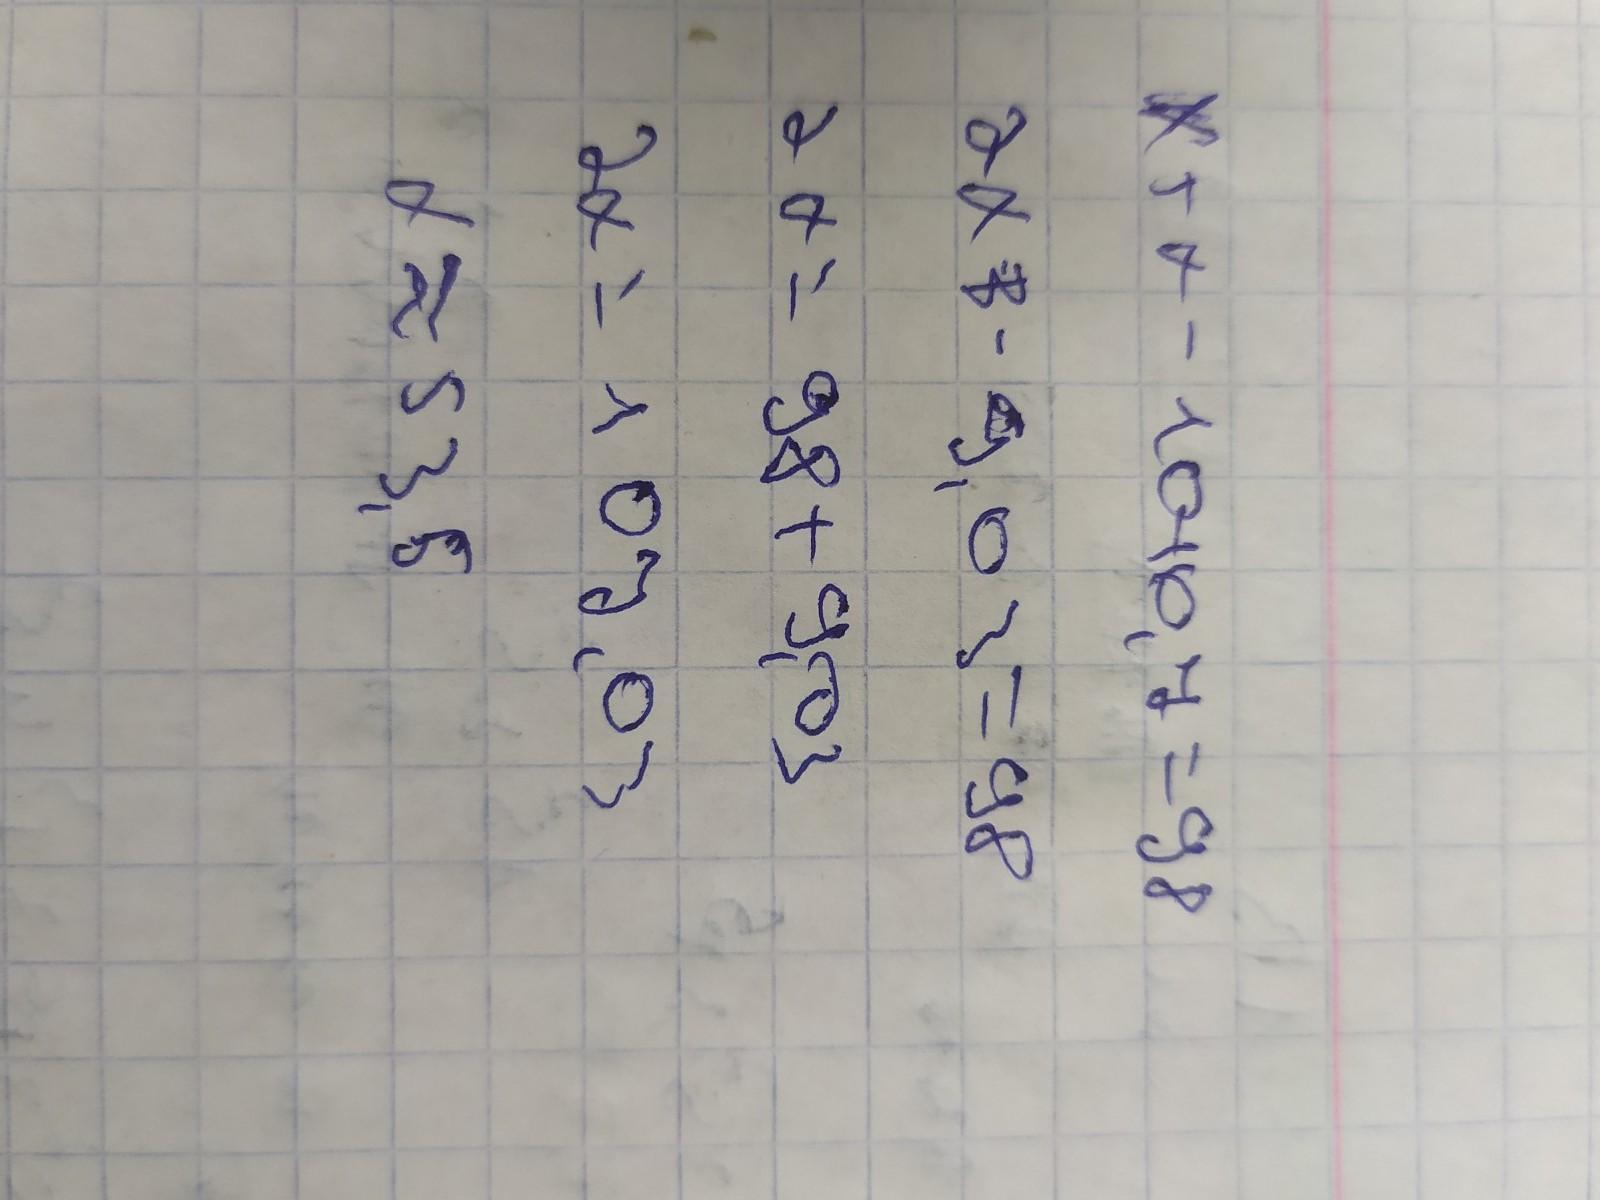 x + x - 10 10,7 = 98
2x - 9,03 = 98
2x = 98 + 9,03
2x = 109,03
x ≈ 53,5